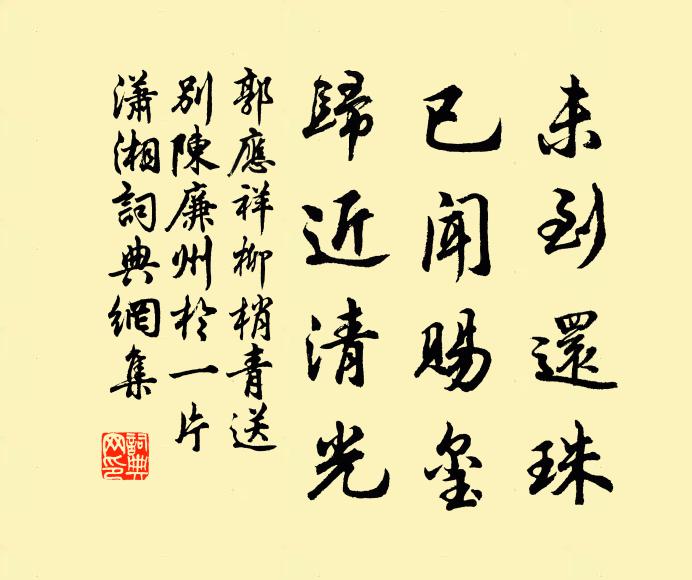 未到還珠
已聞賜璽
歸近清光
郭應祥柳梢青送
別陳廉州於一片
瀟湘詞典網集
詞典
网印